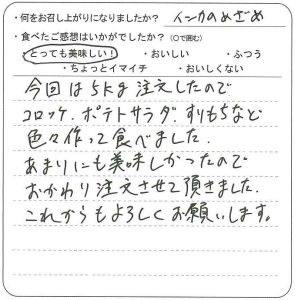 ・何をお召し上がりになりましたか？ インカのめざめ
・食べたご感想はいかがでしたか？（○で囲む）
・とっても美味しい！ ・おいしい ・ふつう
・ちょっとイマイチ ・おいしくない
今回は5kg注文したので
コロッケ、ポテトサラダ、すりもちなど
色々作って食べました。
あまりにも美味しかったので
おかわり注文させて頂きました。
これからもよろしくお願いします。